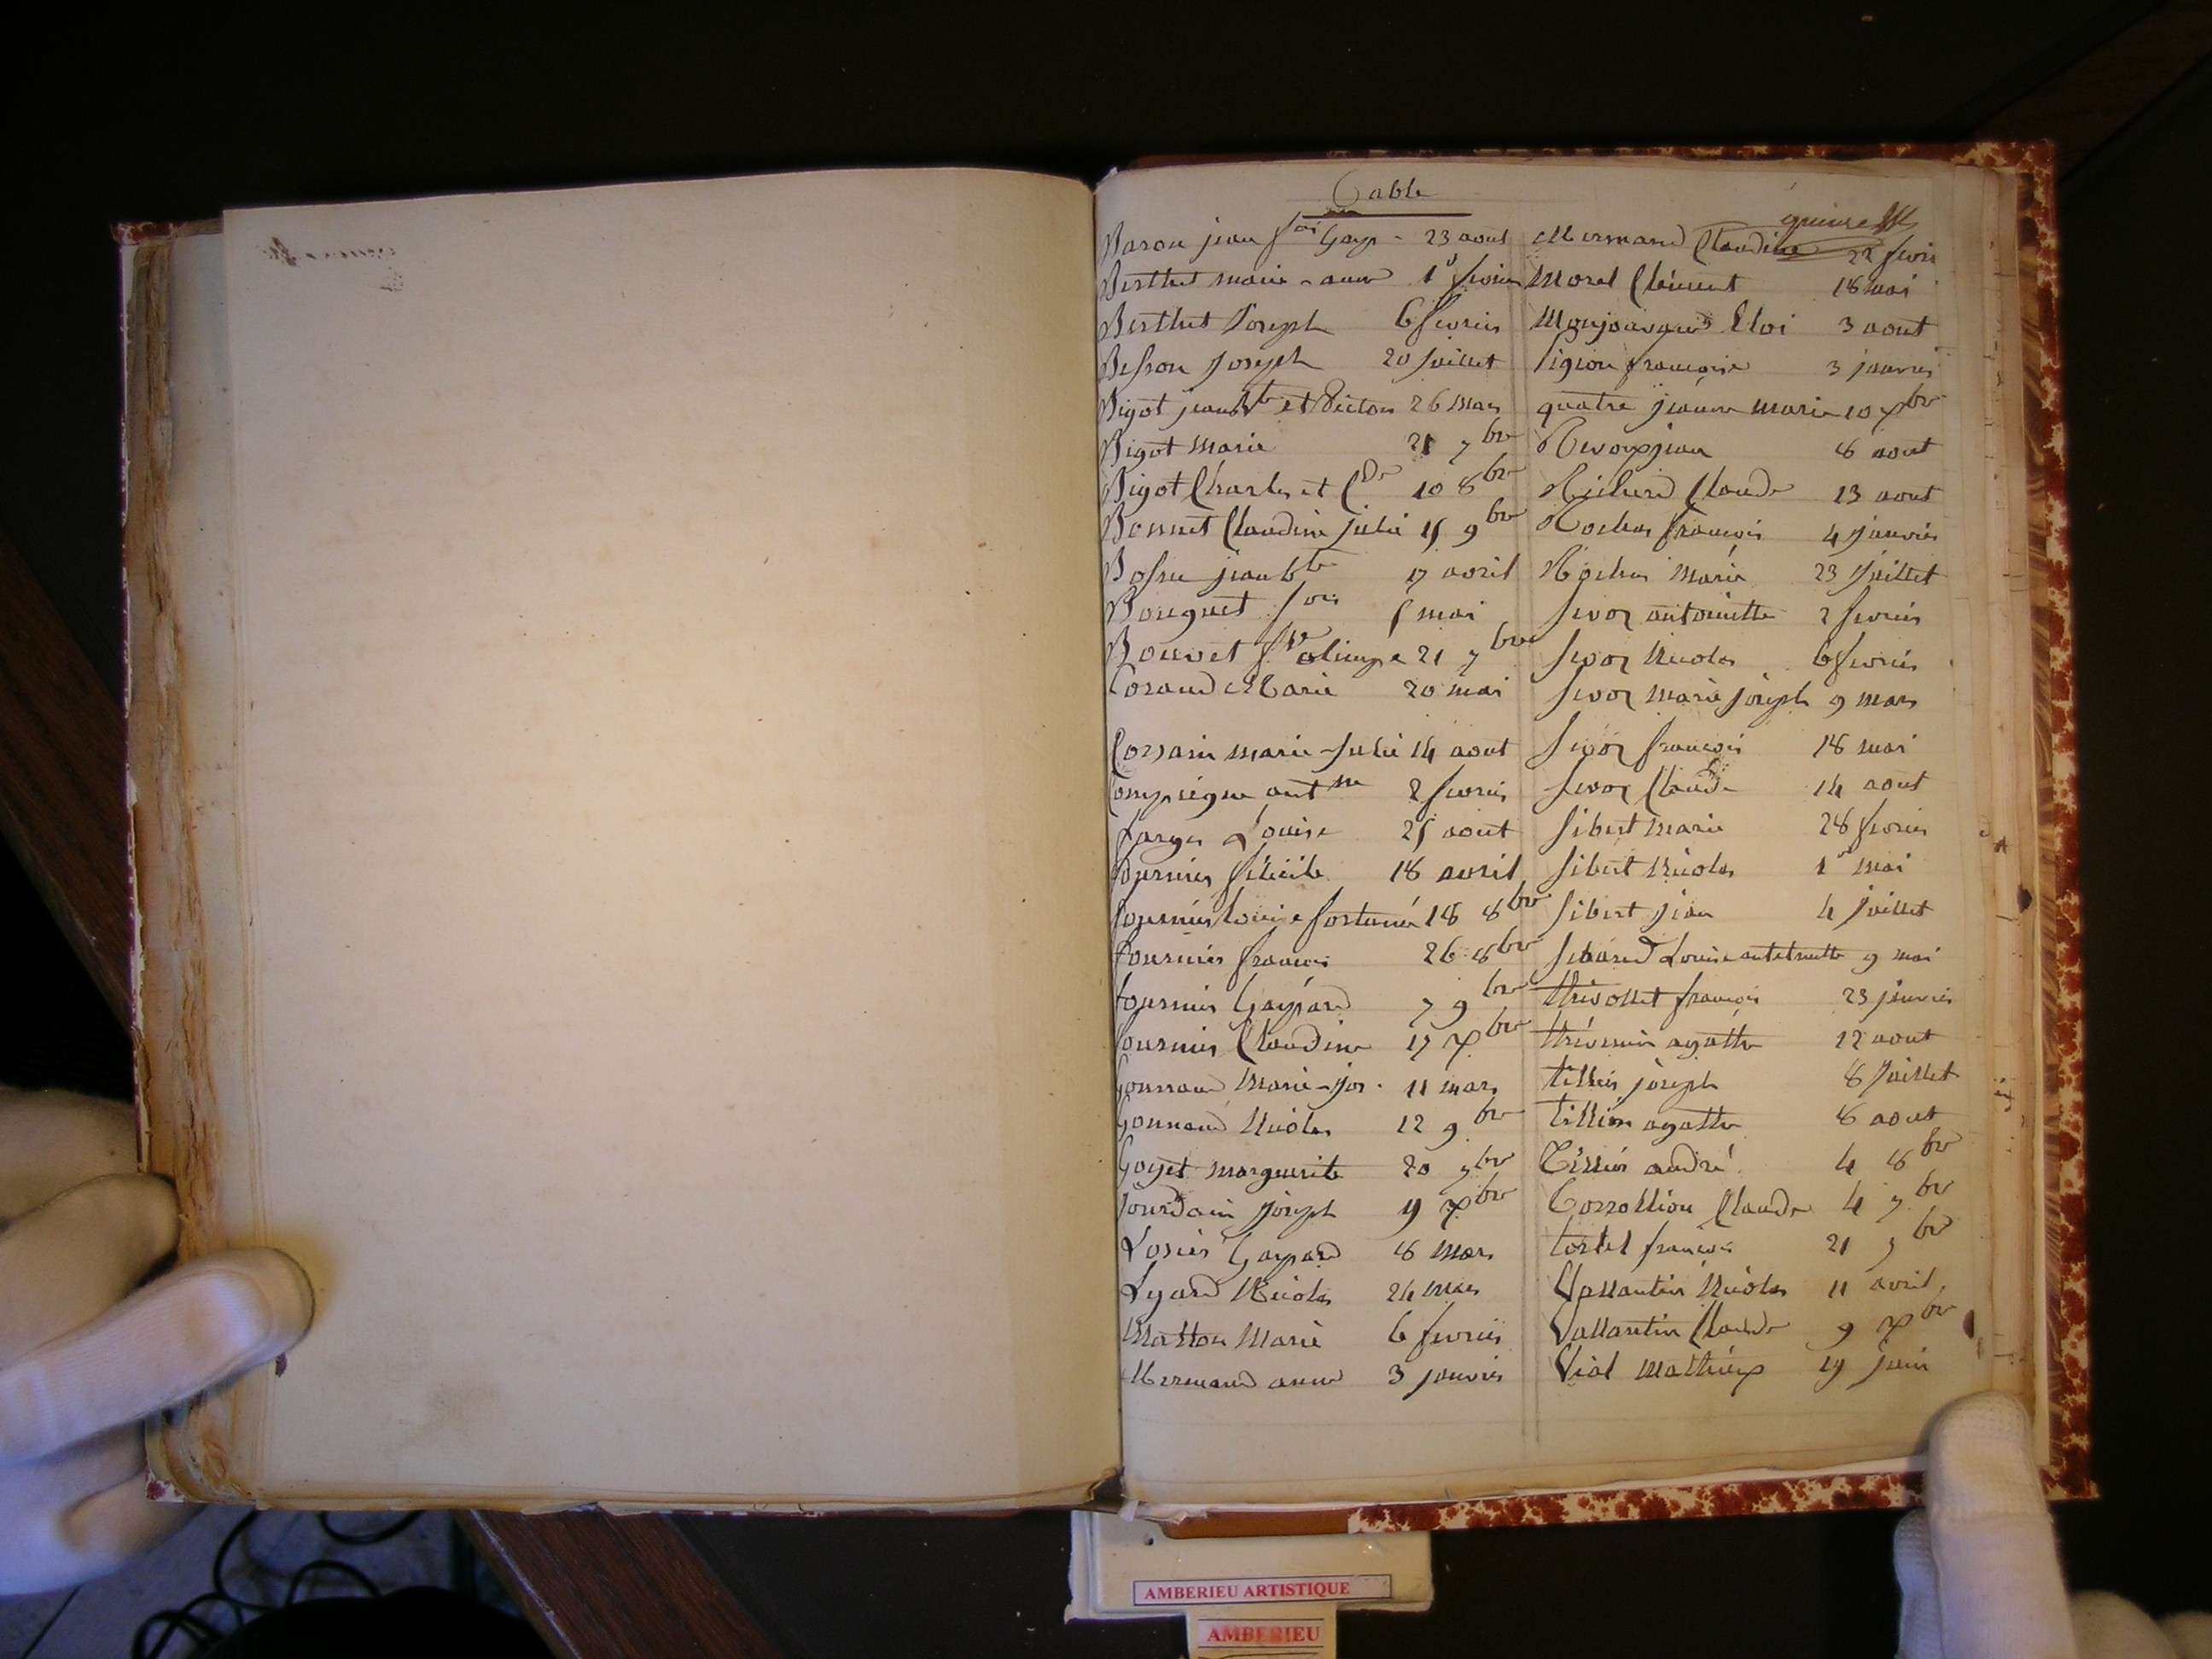 Table
quinze
Baron jean f.ois Gasp - 23 aout
Berthet marie-anne 1er fevrier
Berthet Joseph 6 fevrier
Besson Joseph 20 Juillet
Bigot jean Bte et Victor 26 mars
Bigot Marie 21 7bre
Bigot Charles et Cde 10 8bre
Bonnet Claudine julie 15 9bre
Bossu jean bte 17 avril
Bouquet fois 5 mai
Bouvet olimpe 21 7bre
Corand Marie 20 mai
marie-Julie 14 aout
Compiegne ant.ne 2 fevrier
farges Louise 25 aout
fournier félicité 18 avril
fournier Louise fortuné 18 8bre
fournier francois 26 8bre
fournier Gaspard 7 9bre
fournier Claudine 17 xbre
Gonnand Marie-jos. 11 mars
Gonnand Nicolas 12 9bre
Goyet marguerite 20 7bre
Jourdain joseph 9 xbre
Losier Gaspard 8 mars
Lyard Nicolas 24 mars
Matton Marie 6 fevrier
Mermand anne 3 janvier
Mermand Claudine 22 fevri
Morel Clément 18 mai
Monjouvand Eloi 3 aout
pigion françoise 3 janvier
quatre jeanne marie 10 xbre
Revoux jean 8 aout
Richerd Claude 13 aout
Rochas francois 4 janvier
Rochas Marie 23 Juillet
Sevoz antoinette 2 fevrier
Sevoz Nicolas 6 fevrier
Sevoz marie joseph 9 mars
Sevoz francois 18 mai
Sevoz Claude 14 aout
Sibert marie 28 fevrier
Sibert Nicolas 1er mai
Sibert jean 4 Juillet
Louise 9 mai
thévollet francois 23 janvier
thévenin agatte 12 aout
tillier joseph 8 Juillet
tillier agatte 8 aout
Tillier andré 4 8bre
Torrollion Claude 4 7bre
tortel francois 21
Vallantin Nicolas 11 avril
Vallantin Claude 9 xbre
Vial Mathieux 19 juin
AMBERIEU ARTISTIQUE
AMBERIEU